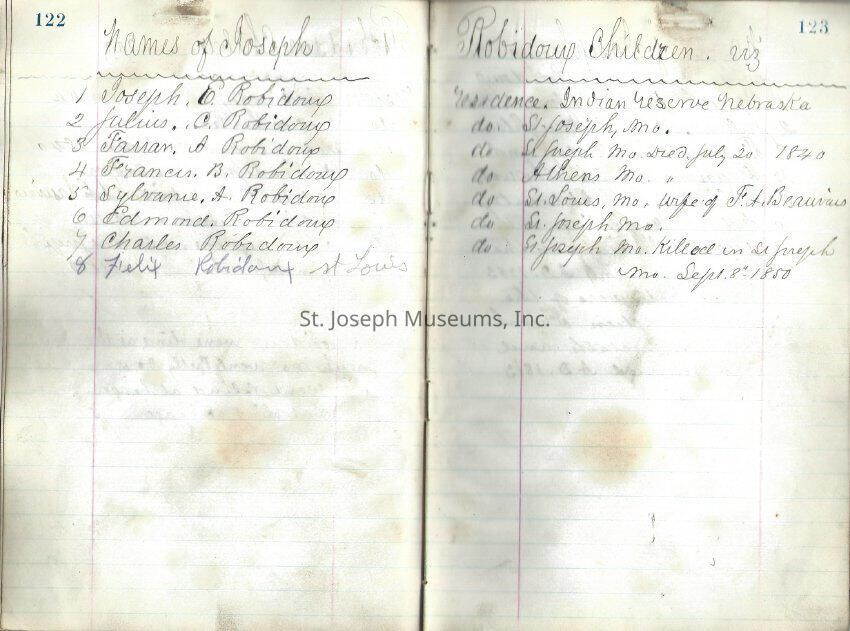 122
Names of Joseph
1 Joseph. E. Robidoux
2 Julius. C. Robidoux
3 Farran. A Robidoux
4 Francis. B. Robidoux
5 Sylvanie. A. Robidoux
6 Edmond. Robidoux
7 Charles Robidoux
8 Felix Robidoux St Louis
123
Robidoux Children. viz
residence. Indian reserve Nebraska
do St. Joseph, Mo.
do St Joseph Mo. Died July 20 1840
do Athens Mo. "
do St. Louis, Mo. wife of F. A. Beauvais
do St. Joseph Mo.
do St Joseph Mo. Killed in St Joseph
Mo. Sept. 8th 1850
St. Joseph Museums, Inc.